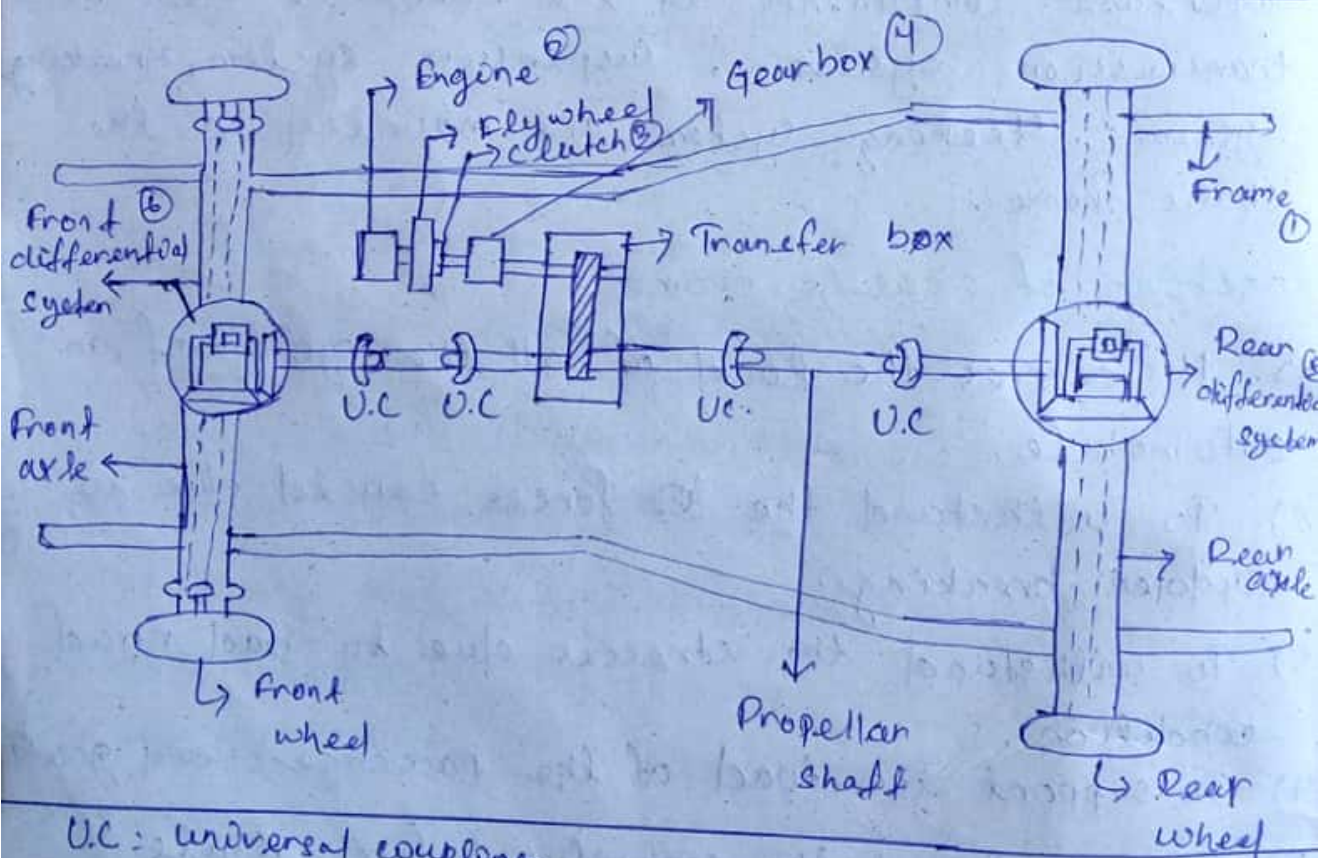 Engine ②
Flywheel
Clutch ③
Gear box ④
Frame
①
Front ⑥
differential
system
Transfer box
Rear
differential
system
U.C
U.C
Uc.
U.C
Front
axle
Rear
axle
Front
wheel
Propellar
shaft
Rear
wheel
U.C: universal coupling